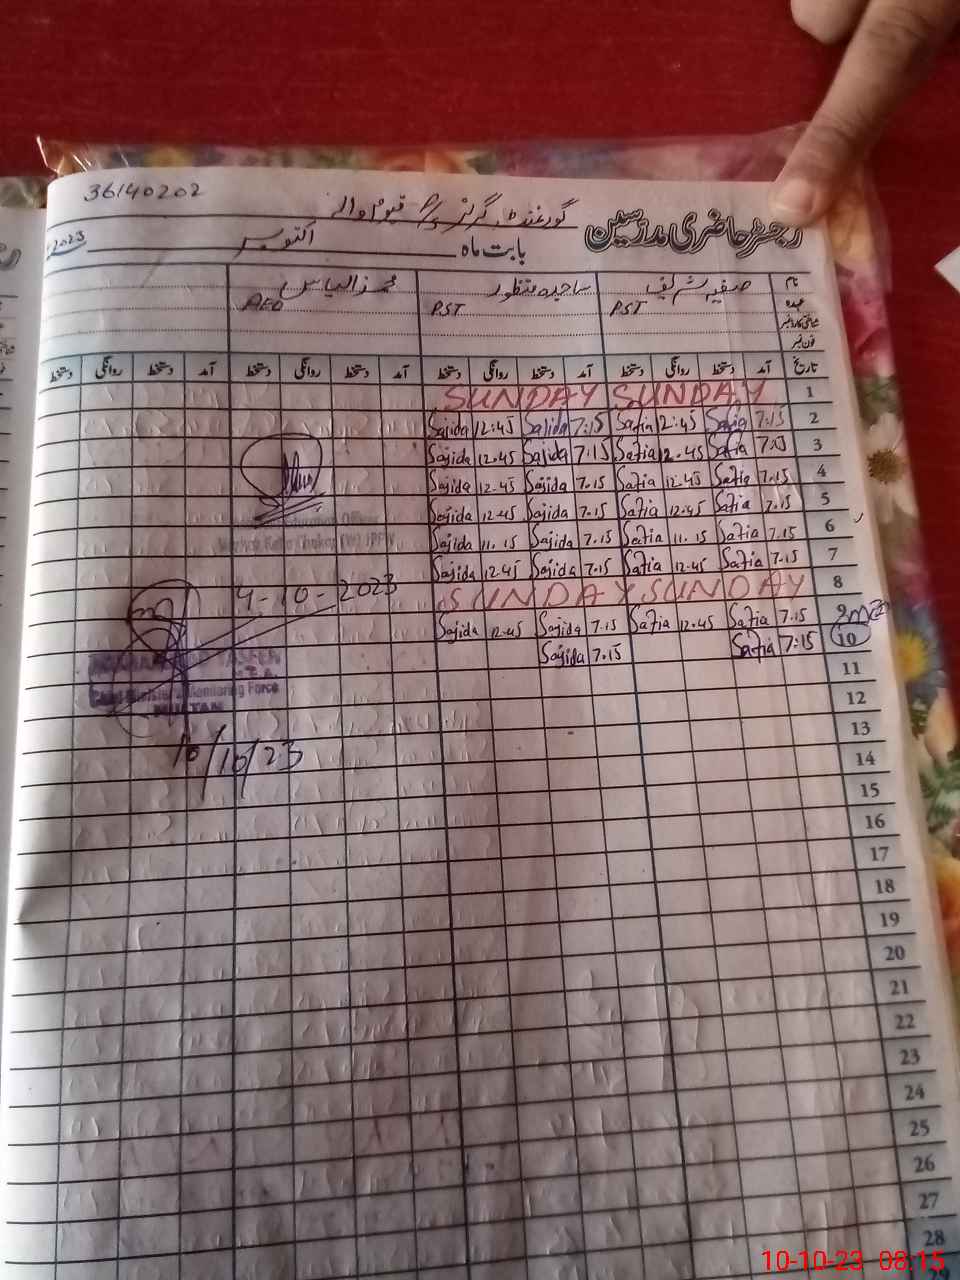 36140202
گورنمنٹ گرلز P/S قیوم والہ
رجسٹر حاضری مدرسین
بابت ماہ اکتوبر 2023
نام صفیہ شریف ساجدہ منظور محمد الیاس
عہدہ PST PST AEO
شناختی کارڈ نمبر
فون نمبر
تاریخ آمد دستخط روانگی دستخط آمد دستخط روانگی دستخط آمد دستخط روانگی دستخط آمد دستخط روانگی دستخط
SUNDAY SUNDAY 1
Sajida 12:45 Sajida 7:15 Safia 12:45 Safia 7:15 2
Sajida 12.45 Sajida 7:15 Safia 12.45 Safia 7:15 3
Sajida 12.45 Sajida 7.15 Safia 12.45 Safia 7.15 4
Sajida 12.45 Sajida 7.15 Safia 12.45 Safia 7.15 5
Sajida 11.15 Sajida 7.15 Safia 11.15 Safia 7.15 6
Sajida 12.45 Sajida 7.15 Safia 12.45 Safia 7.15 7
SUNDAY SUNDAY 8
Sajida 12.45 Sajida 7.15 Safia 12.45 Safia 7.15 9
Sajida 7.15 Safia 7:15 10
11
12
13
14
15
16
17
18
19
20
21
22
23
24
25
26
27
28
29
Education Officer
4-10-2023
Chief Minister's Monitoring Force
MULTAN
10/10/23
10-10-23 08:15